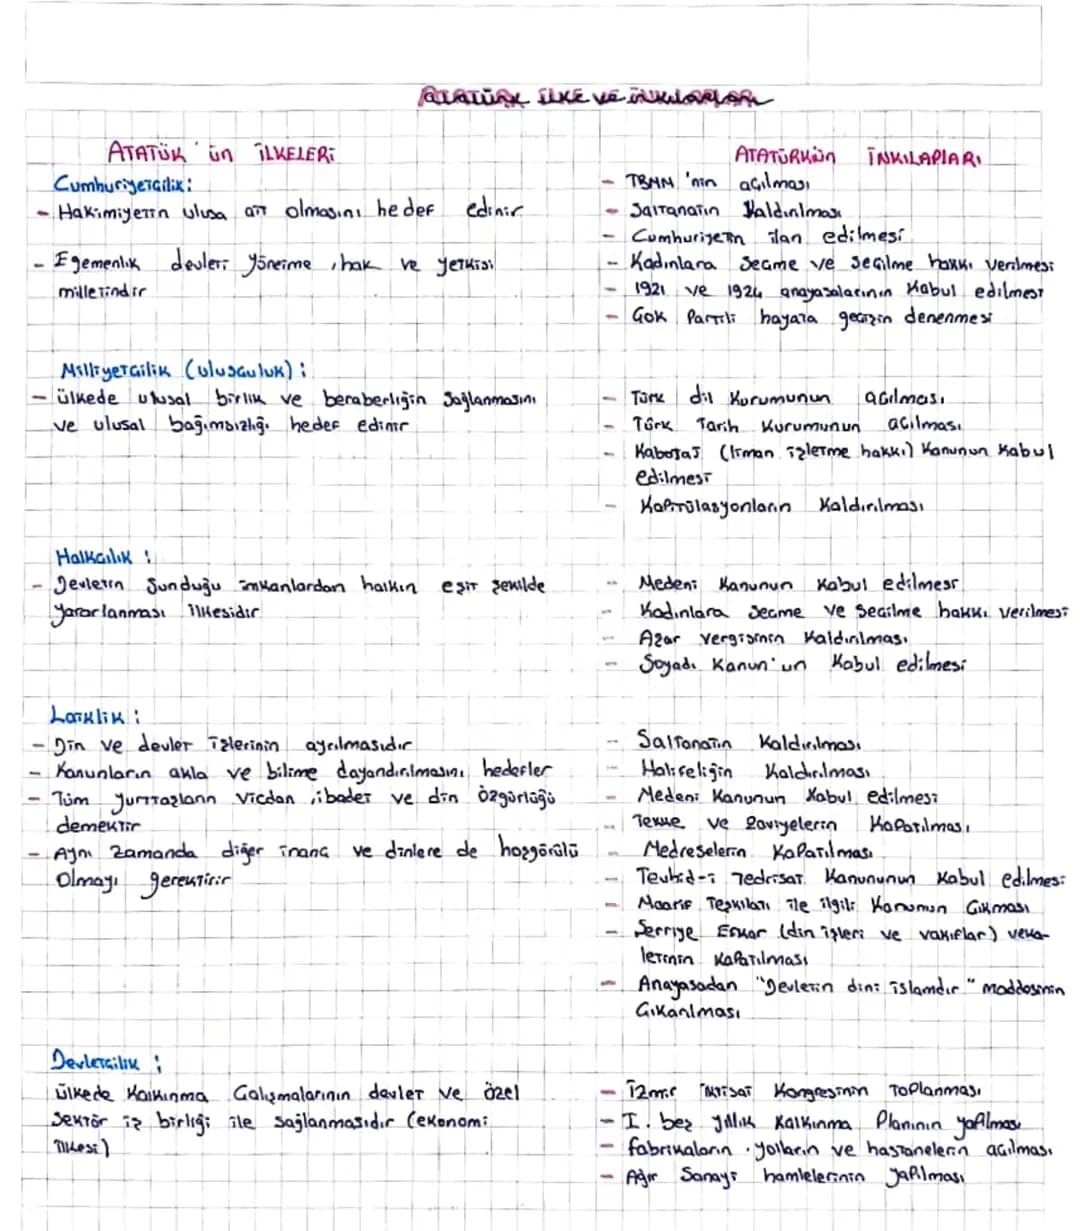 ATATÜRK İLKE VE İNKILAPLARI
ATATÜK'ün İLKELERİ
Cumhuriyetçilik:
- Hakimiyetin ulusa ait olmasını hedef edinir
- Egemenlik devleti yönetme, hak ve yetkisi
milletindir
Milliyetçilik (ulusçuluk):
- ülkede ulusal birlik ve beraberliğin sağlanmasını
ve ulusal bağımsızlığı hedef edinir
Halkçılık:
- Devletin sunduğu imkanlardan halkın eşit şekilde
yararlanması ilkesidir
Laiklik:
- Din ve devlet işlerinin ayrılmasıdır
- Kanunların akla ve bilime dayandırılmasını hedefler
- Tüm yurttaşların vicdan, ibadet ve din özgürlüğü
demektir
- Aynı zamanda diğer inanç ve dinlere de hoşgörülü
Olmayı gerektirir
Devletçilik:
ülkede kalkınma Çalışmalarının devlet ve özel
sektör iş birliği ile sağlanmasıdır (ekonomi
ilkesi)
ATATÜRKÜn İNKILAPLARI
- TBMM'nin açılması
- Saltanatın Kaldırılması
- Cumhuriyetin ilan edilmesi
- Kadınlara seçme ve seçilme hakkı verilmesi
- 1921 ve 1924 anayasalarının Kabul edilmesi
- Çok Partili hayata geçişin denenmesi
- Türk dil Kurumunun açılması
- Türk Tarih Kurumunun açılması
- Kabotaj (liman işletme hakkı) Kanunun Kabul
edilmesi
- Kapitülasyonların Kaldırılması
- Medeni Kanunun Kabul edilmesi
- Kadınlara seçme ve seçilme hakkı verilmesi
- Aşar vergisinin Kaldırılması
- Soyadı Kanun'un Kabul edilmesi
- Saltanatın Kaldırılması
- Halifeliğin Kaldırılması
- Medeni Kanunun Kabul edilmesi
- Tekke ve zaviyelerin Kapatılması
- Medreselerin Kapatılması
- Tevhid-i Tedrisat Kanununun Kabul edilmesi
- Maarif Teşkilatı ile ilgili Kanunun Çıkması
- Şerriye Evkaf (din işleri ve vakıflar) veka-
letinin Kapatılması
- Anayasadan "Devletin dini islamdır" maddesinin
Çıkarılması
- İzmir iktisat Kongresinin Toplanması
- I. beş yıllık Kalkınma Planının yapılması
- fabrikaların, yolların ve hastanelerin açılması
- Ağır Sanayi hamlelerinin yapılması